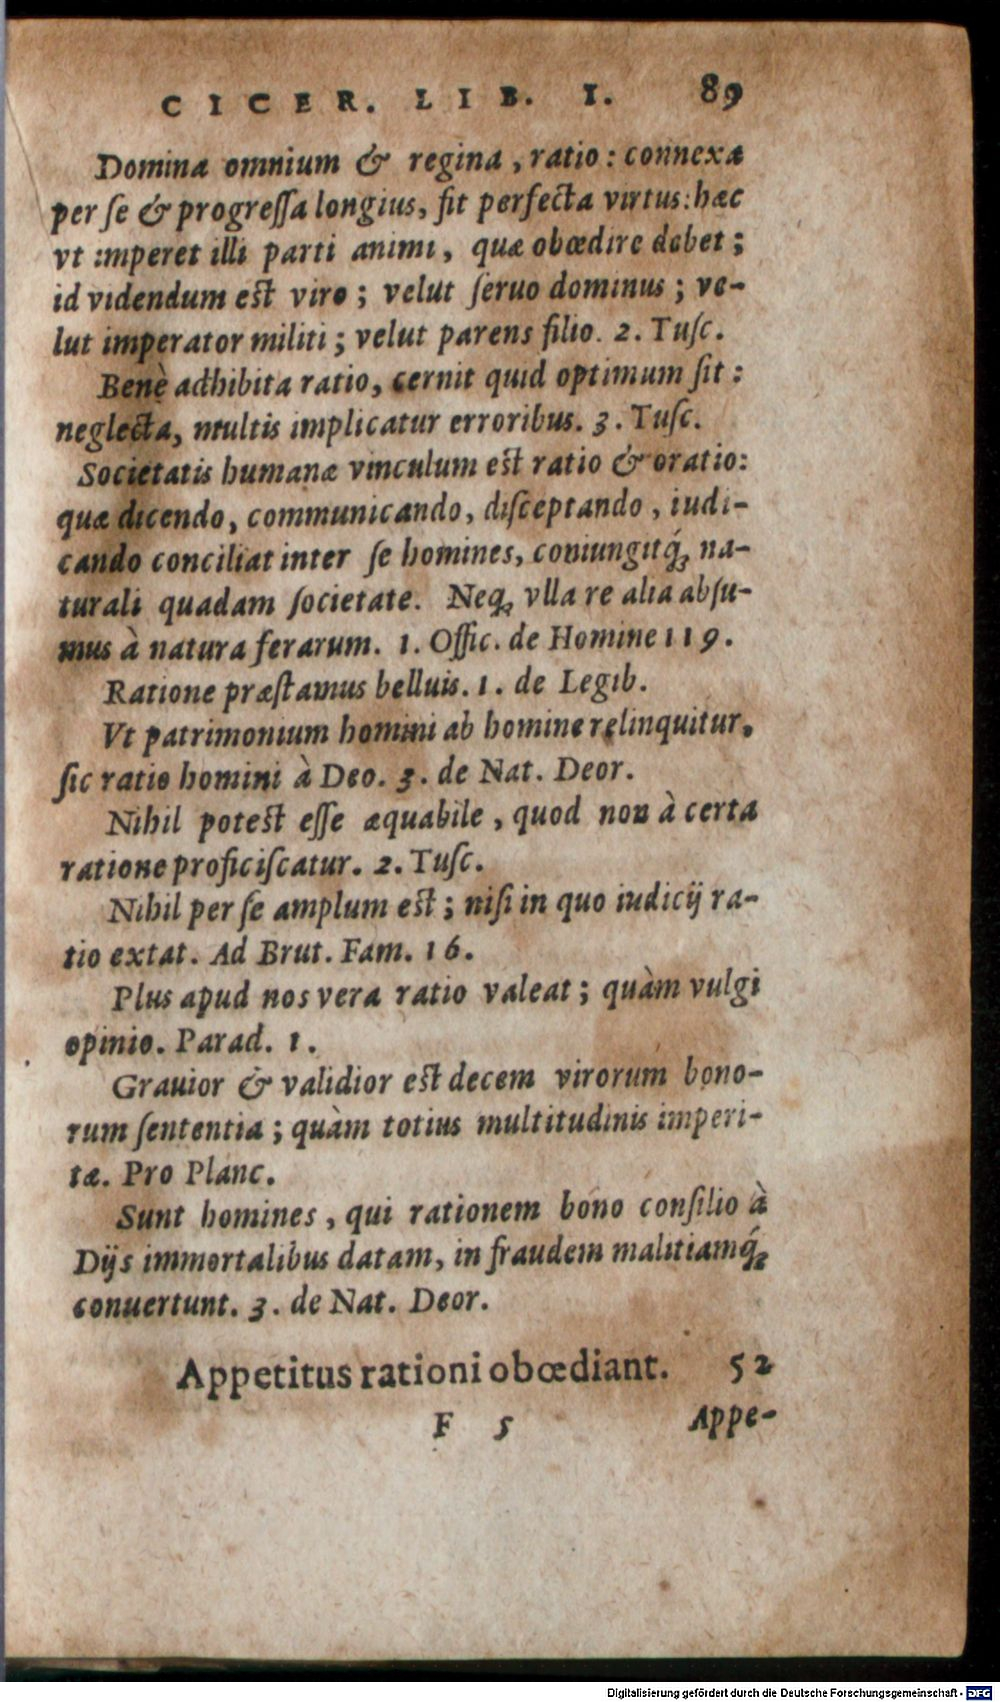 CICER. LIB. I. 89
Domina omnium & regina, ratio: connexa
per ſe & progreſſa longius, fit perfecta virtus: hæc
vt imperet illi parti animi, quæ obœdire debet;
id videndum est viro; velut ſeruo dominus; ve-
lut imperator militi; velut parens filio. 2. Tuſc.
Benè adhibita ratio, cernit quid optimum ſit:
neglecta, multis implicatur erroribus. 3. Tuſc.
Societatis humanæ vinculum est ratio & oratio:
quæ dicendo, communicando, diſceptando, iudi-
cando conciliat inter ſe homines, coniungitq́; na-
turali quadam ſocietate. Neq; vlla re alia abſu-
mus à natura ferarum. 1. Offic. de Homine 119.
Ratione præſtamus belluis. 1. de Legib.
Vt patrimonium homini ab homine relinquitur,
ſic ratio homini à Deo. 3. de Nat. Deor.
Nihil potest eſſe æquabile, quod non à certa
ratione proficiſcatur. 2. Tuſc.
Nihil per ſe amplum est; niſi in quo iudicij ra-
tio extat. Ad Brut. Fam. 16.
Plus apud nos vera ratio valeat; quàm vulgi
opinio. Parad. 1.
Grauior & validior est decem virorum bono-
rum ſententia; quàm totius multitudinis imperi-
tæ. Pro Planc.
Sunt homines, qui rationem bono conſilio à
Dijs immortalibus datam, in fraudem malitiamq́;
conuertunt. 3. de Nat. Deor.
Appetitus rationi obœdiant. 52
F 5 Appe-
Digitalisierung gefördert durch die Deutsche Forschungsgemeinschaft - DFG